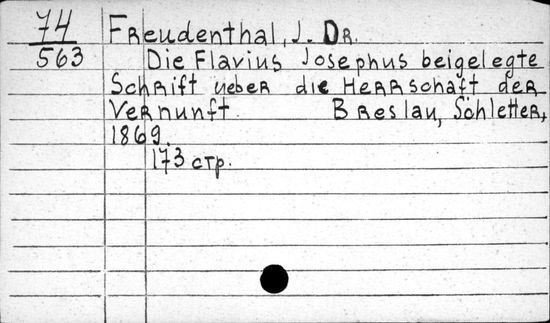 74 Freudenthal, J. Dr.
563 Die Flavius Josephus beigelegte
Schrift ueber die Herrschaft der
Vernunft Breslau, Schletter,
1869.
173 стр.